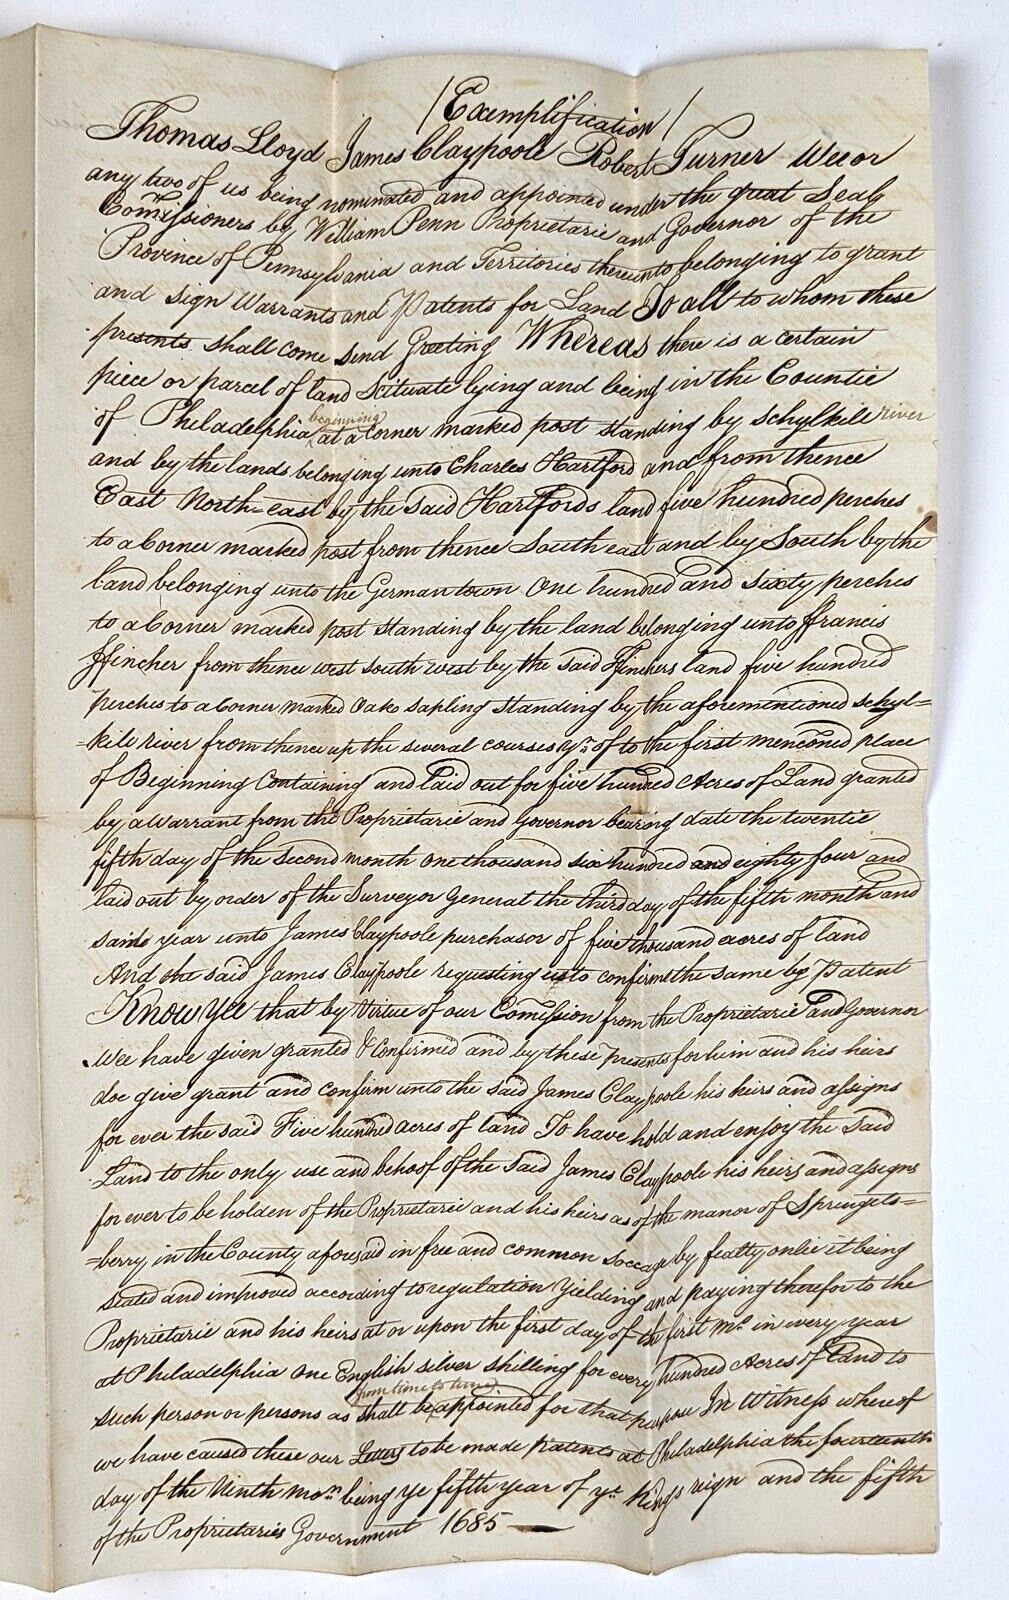 /Exemplification/
Thomas Lloyd James Claypoole Robert Turner Wee or
any two of us being nominated and appointed under the great Seal
Commissioners by William Penn Proprietarie and Governor of the
Province of Pennsylvania and Territories thereunto belonging to grant
and sign Warrants and Patents for Land To all to whom these
presents shall come Send Greeting Whereas there is a certain
piece or parcel of land Scituate lying and being in the Countie
of Philadelphia beginning at a Corner marked post standing by Schylkill river
and by the lands belonging unto Charles Hartford and from thence
East North=east by the said Hartfords land five hundred perches
to a Corner marked post from thence South east and by South by the
land belonging unto the Germantown One hundred and sixty perches
to a Corner marked post standing by the land belonging unto ffrancis
ffincher from thence west South west by the said ffinchers land five hundred
perches to a Corner marked Oake sapling standing by the aforementioned schyl=
=kill river from thence up the several courses yr. of to the first menconed place
of Beginning Containing and laid out for five hundred Acres of Land granted
by a Warrant from the Proprietarie and Governor bearing date the twentie
fifth day of the Second month One thousand six hundred and eighty four and
laid out by order of the Surveyor General the third day of the fifth month and
same year unto James Claypoole purchasor of five thousand acres of land
And the said James Claypoole requesting us to confirme the same by Patent
Know Yee that by Virtue of our Comission from the Proprietarie and Governor
Wee have given granted & Confirmed and by these presents for him and his heirs
doe give grant and confirm unto the said James Claypoole his heirs and assigns
for ever the said Five hundred acres of land To have hold and enjoy the said
Land to the only use and behoof of the said James Claypoole his heirs and assigns
for ever to be holden of the Proprietarie and his heirs as of the manor of Springets=
=berry in the County aforesaid in free and common Soccage by fealty onlie it being
seated and improved according to regulation Yielding and paying therefor to the
Proprietarie and his heirs at or upon the first day of the first Mo. in every year
at Philadelphia One English silver shilling for every hundred Acres of Land to
such person or persons as shall be from time to time appointed for that purpose In Witness whereof
we have caused these our Letters to be made Patents at Philadelphia the fourteenth
day of the Ninth mon. being ye fifth year of ye. Kings reign and the fifth
of the Proprietaries Government 1685